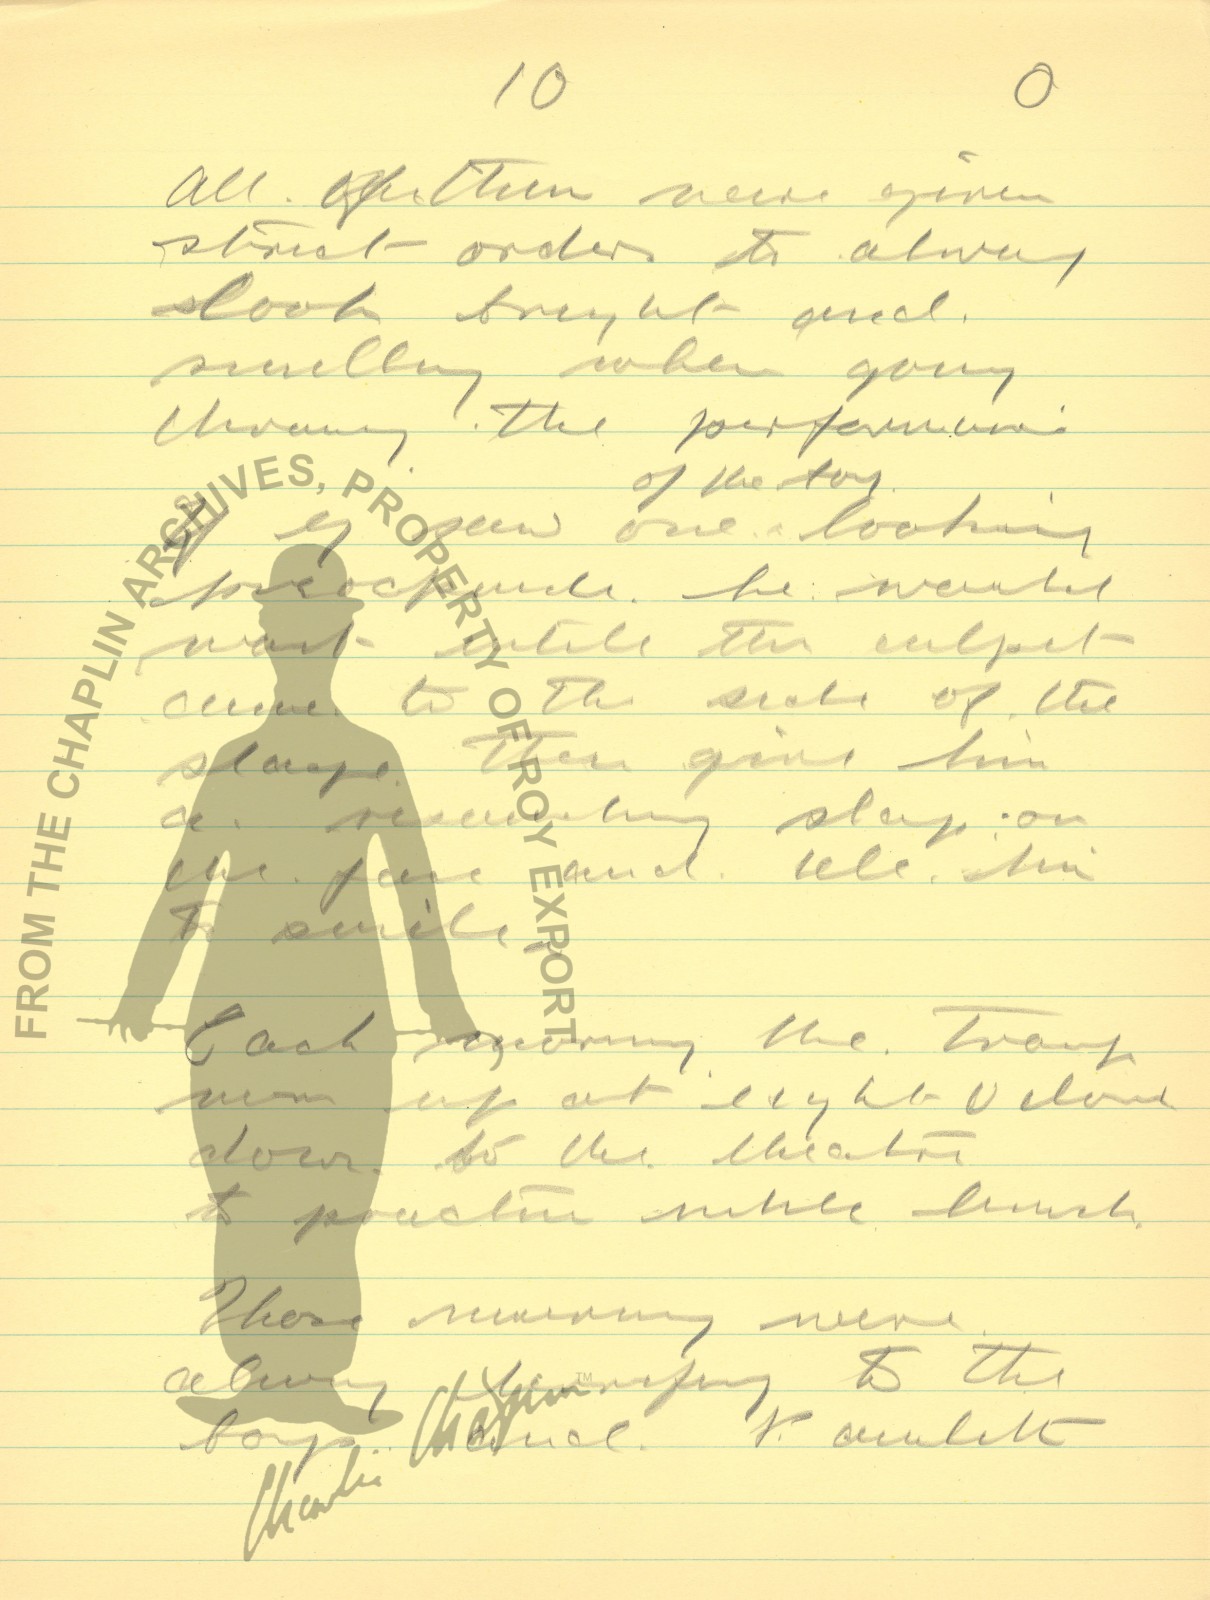 10 0
All of them were given
strict orders to alway
look bright and
smilling when going
through the performance
of the boy
If ey saw one looking
he would
wait untill the culprit
came to the side of the
stage. Then give him
a resounding slap on
the face and tell him
to smile,
Each morning the Troup
up at eight O clock
down to the theatre
to practice untill lunch.
Those morning were
alway to the
boys and
FROM THE CHAPLIN ARCHIVES, PROPERTY OF ROY EXPORT
TM
Charlie Chaplin